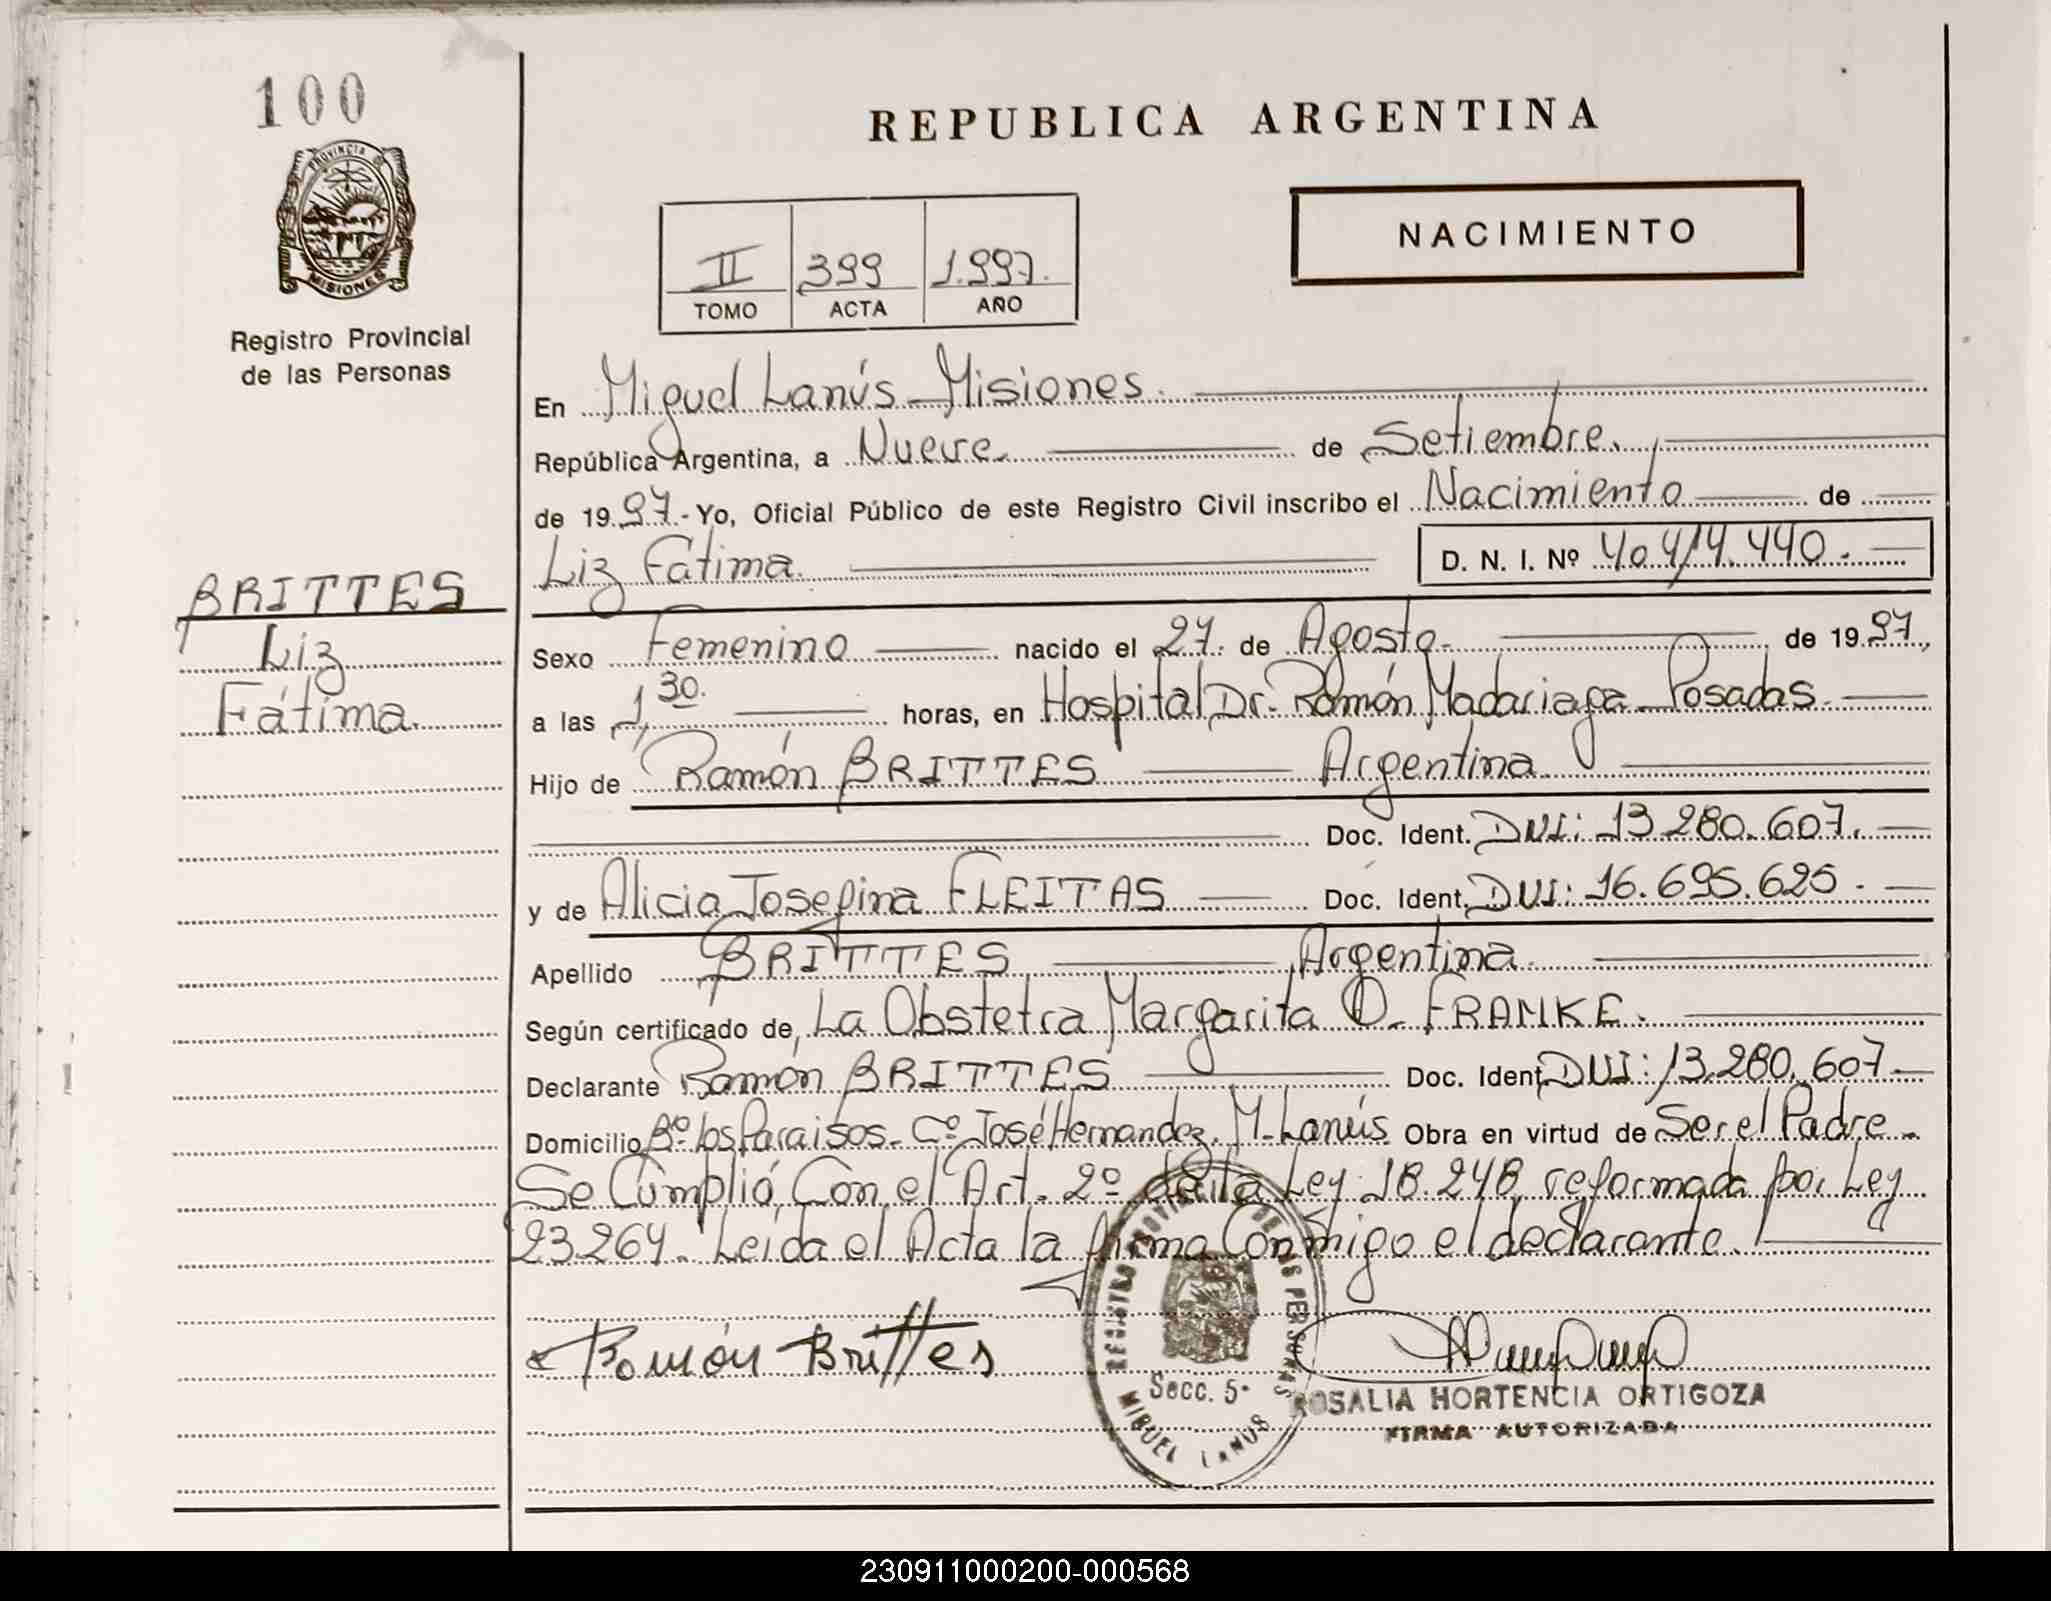 100
PROVINCIA DE
MISIONES
Registro Provincial
de las Personas
BRITTES
Liz
Fátima
REPUBLICA ARGENTINA
NACIMIENTO
II 399 1.997.
TOMO ACTA AÑO
En Miguel Lanús - Misiones.
República Argentina, a Nueve de Setiembre.
de 1997.- Yo, Oficial Público de este Registro Civil inscribo el Nacimiento de
Liz Fátima. D. N. I. Nº 40.414.440.-
Sexo Femenino nacido el 27. de Agosto. de 1997.
a las 1,30. horas, en Hospital Dr. Ramón Madariaga - Posadas.
Hijo de Ramón BRITTES Argentina
Doc. Ident. DNI: 13.280.607.
y de Alicia Josefina FLEITAS Doc. Ident. DNI: 16.695.625.-
Apellido BRITTES Argentina.
Según certificado de La Obstetra Margarita O. FRANKE.
Declarante Ramón BRITTES Doc. Ident. DNI: 13.280.607-
Domicilio Bº Los Paraisos - Cº José Hernandez. M. Lanús Obra en virtud de Ser el Padre.
Se Cumplió Con el Art. 2º de la Ley 18.248, reformada por Ley
23.264. Leída el Acta la firma Conmigo el declarante.
Ramón Brittes
REGISTRO PROVINCIAL DE LAS PERSONAS
Secc. 5a
MIGUEL LANUS
ROSALIA HORTENCIA ORTIGOZA
FIRMA AUTORIZADA
230911000200-000568